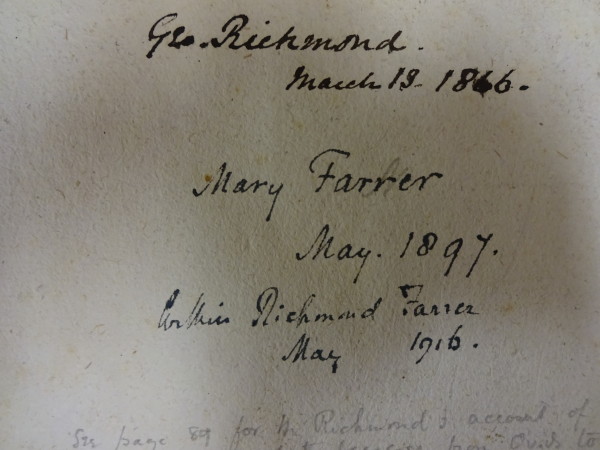 Geo. Richmond.
March 13 - 1866.
Mary Farrer
May. 1897.
Richmond Farrer
May 1916.
See page 89 for Mr Richmond's account of
to